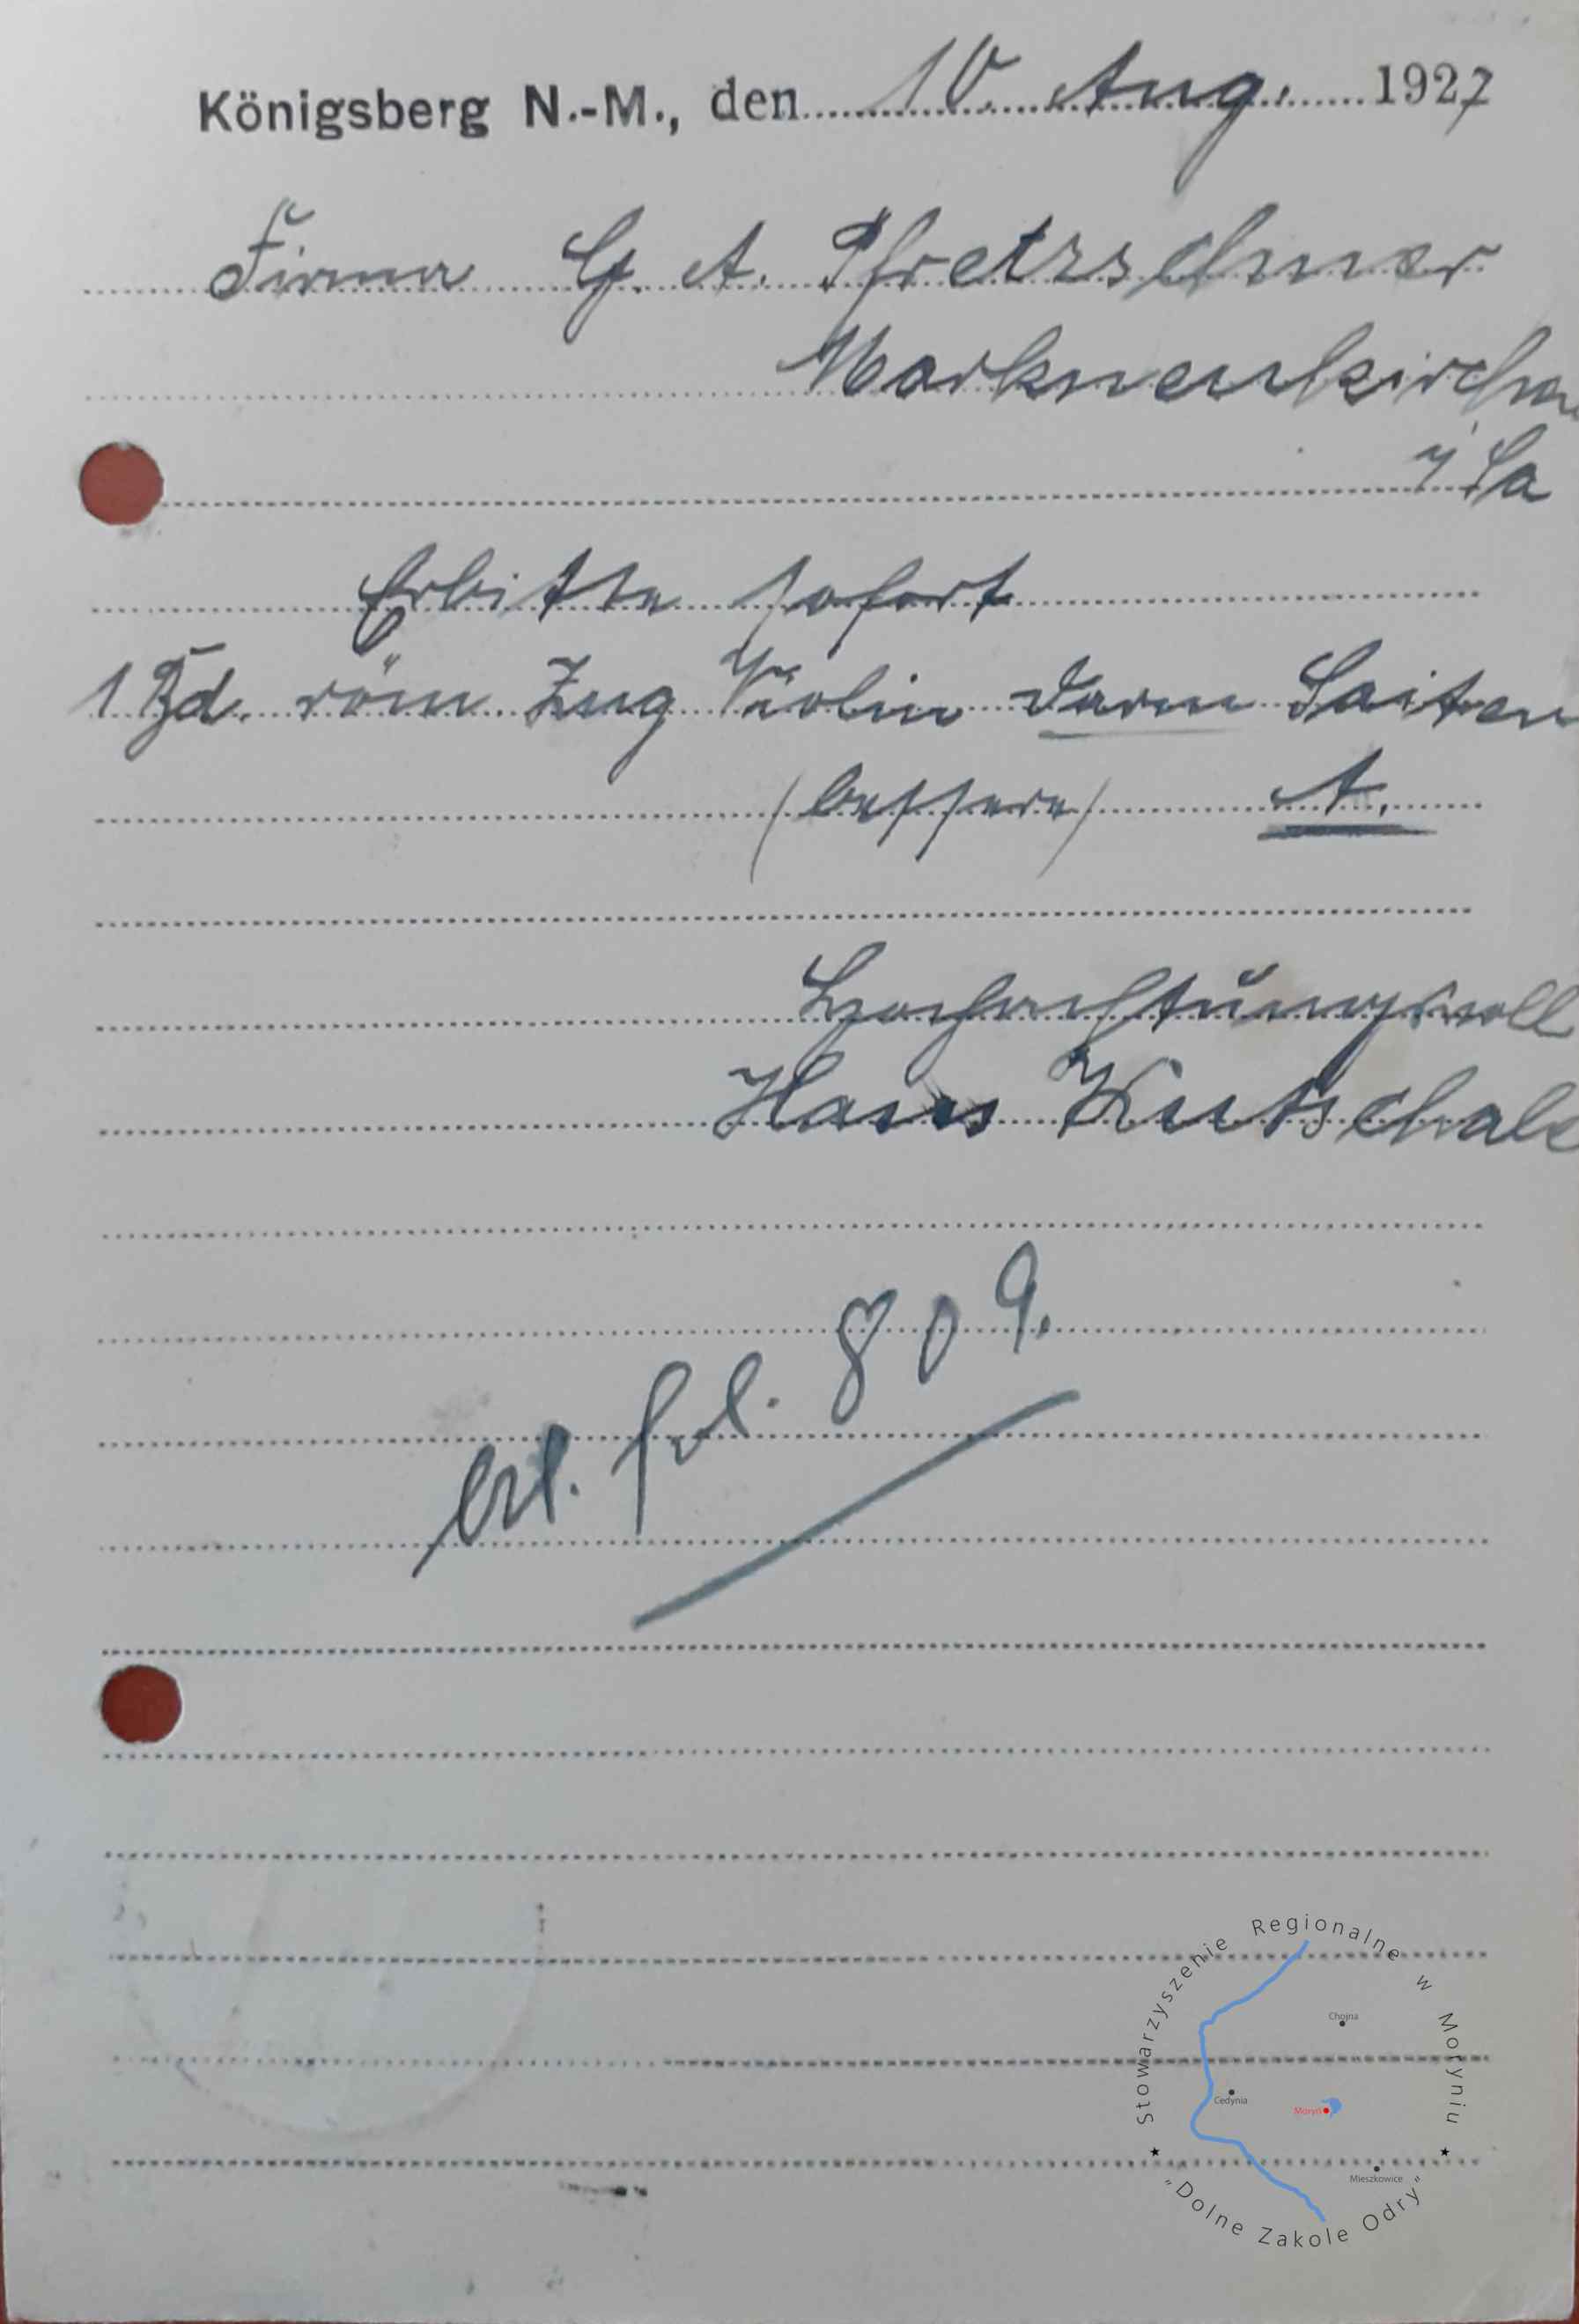 Königsberg N.-M., den 10. Aug. 1927
Firma G. A. Pfretzschner
Markneukirchen
i/Sa
Erbitte sofort
1 Bd. röm Zug Violin Darm Saiten
/bessere/ A.
Hochachtungsvoll
Hans Kutschale
erl. fol. 809.
Stowarzyszenie Regionalne w Moryniu
Chojna
Cedynia
Moryń
Mieszkowice
"Dolne Zakole Odry"